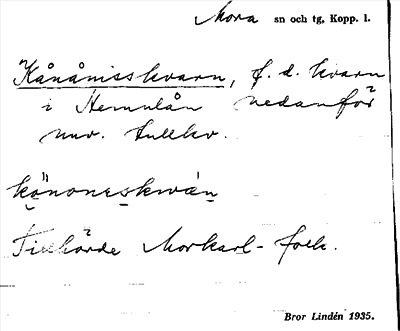 Mora sn och tg, Kopp. l.
Kånånisskvarn, f. d. kvarn
i Hemulån nedanför
nuv. tullkv.
könoneskwán
Tillhörde Morkarl-folk.
Bror Lindén 1935.